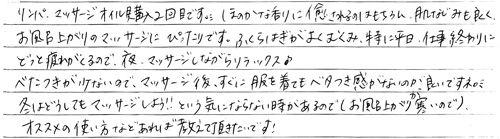 リンパ、マッサージオイル購入2回目です。ほのかな香りに癒されるのはもちろん、肌なじみも良く、
お風呂上がりのマッサージにぴったりです。ふくらはぎがよくむくみ、特に平日、仕事終わりに
どっと疲れがくるので、夜、マッサージしながらリラックス♪
べたつきが少ないので、マッサージ後、すぐに服を着てもベタつき感がないのが良いですね。
冬はどうしてもマッサージしよう!!という気にならない時があるので(お風呂上がりが寒いので)、
オススメの使い方などあれば教えて頂きたいです!